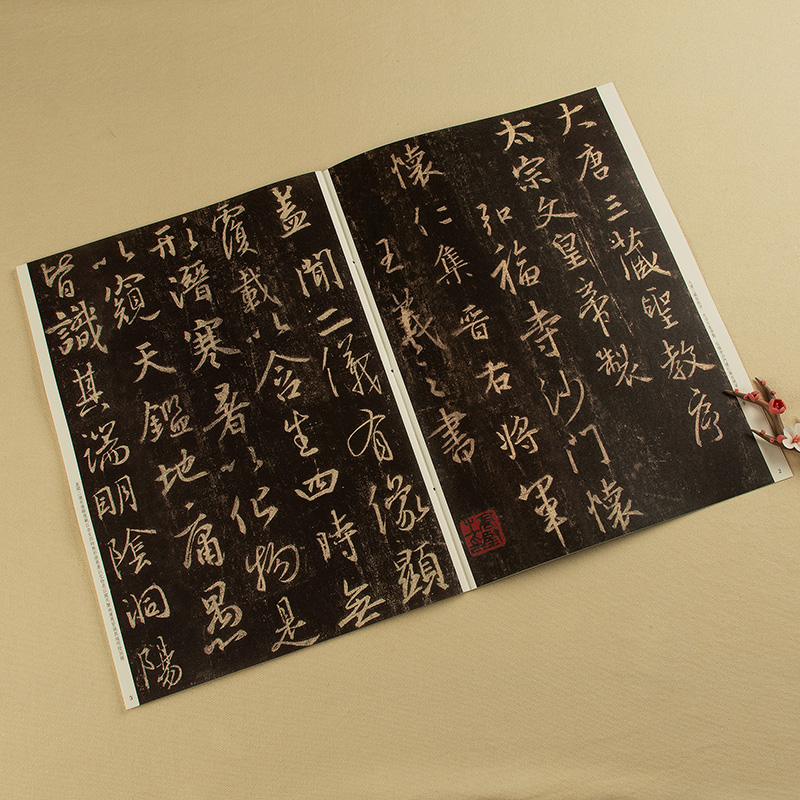 大唐三藏聖教序
太宗文皇帝製
弘福寺沙門懷
懷仁集晉右將軍
王羲之書
2
蓋聞二儀有像顯
覆載以含生四時無
形潛寒暑以化物是
以窺天鑑地庸愚
皆識其端明陰洞陽
3